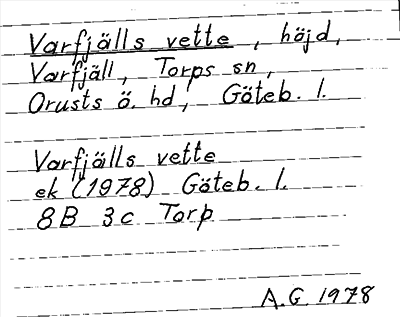 Varfjälls vette, höjd,
Varfjäll, Torps sn,
Orusts ö. hd, Göteb. l.
Varfjälls vette
ek (1978) Göteb. l.
8B 3c Torp
A.G. 1978